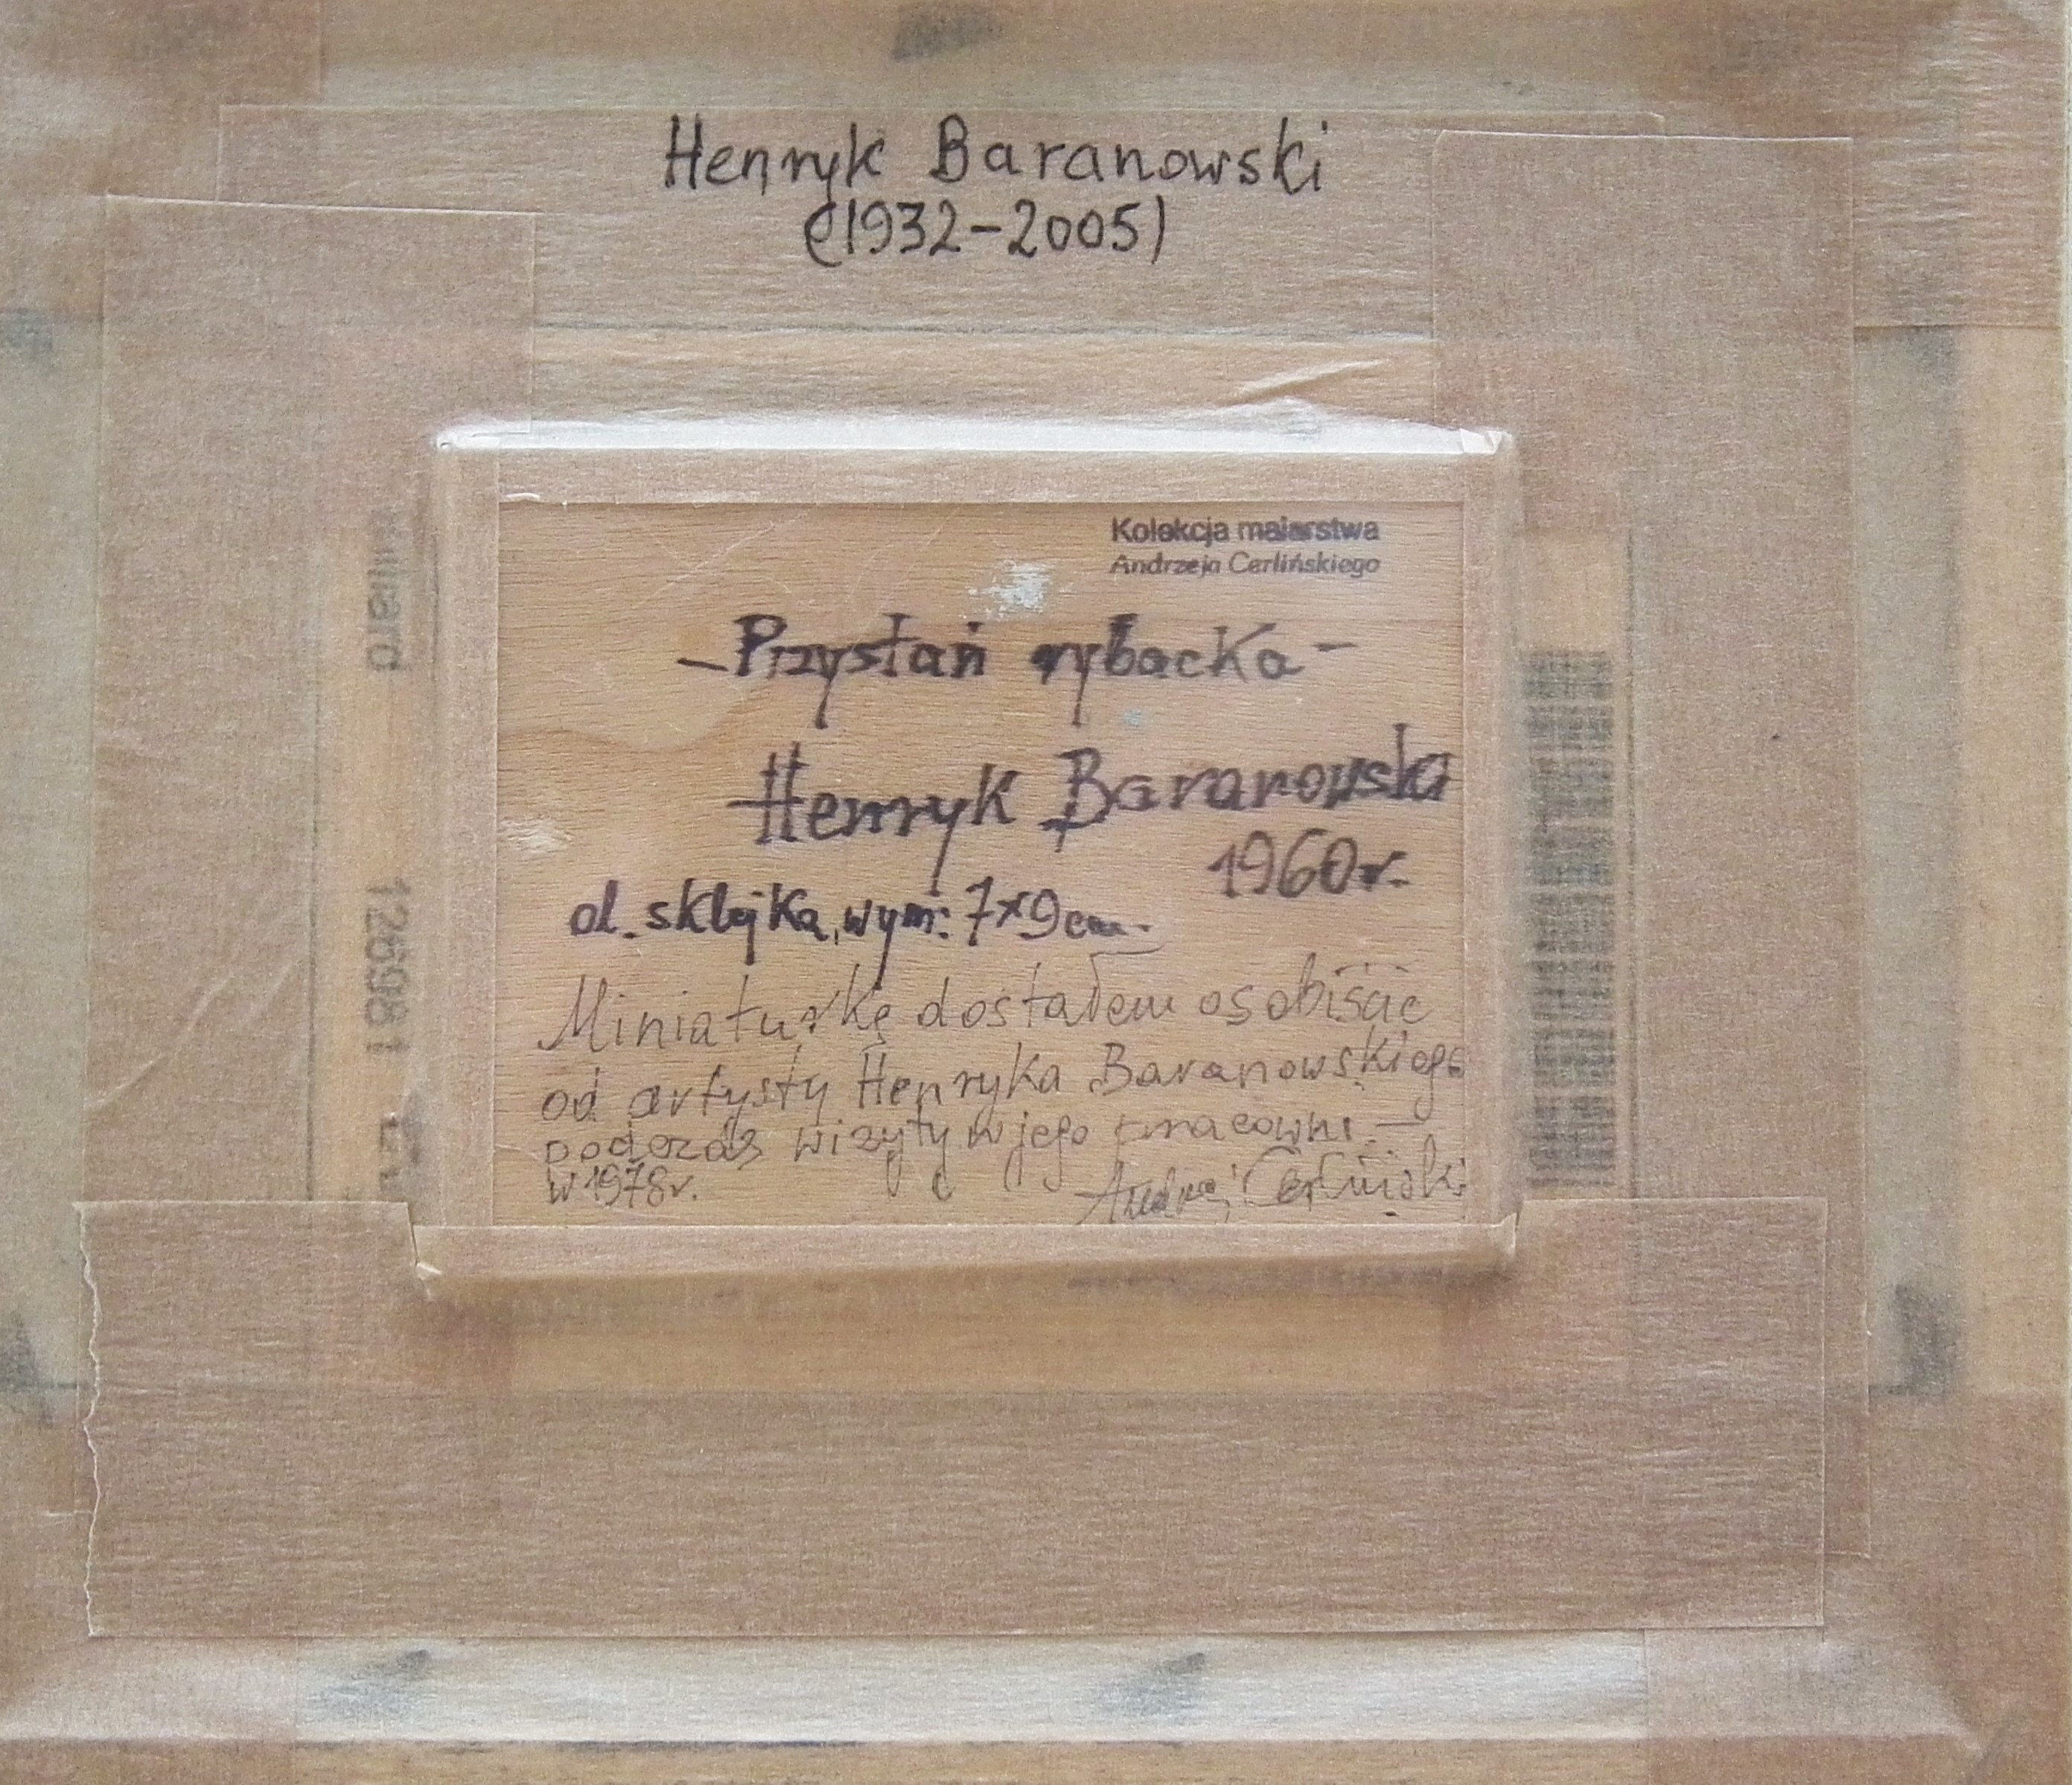 Henryk Baranowski
(1932-2005)
Kolekcja malarstwa
Andrzeja Cerlińskiego
-Przystań rybacka-
Henryk Baranowski
1960r.
ol. sklejka, wym: 7x9cm.
Miniaturkę dostałem osobiście
od artysty Henryka Baranowskiego
podczas wizyty w jego pracowni
w 1978r.
Andrzej Cerliński
126981